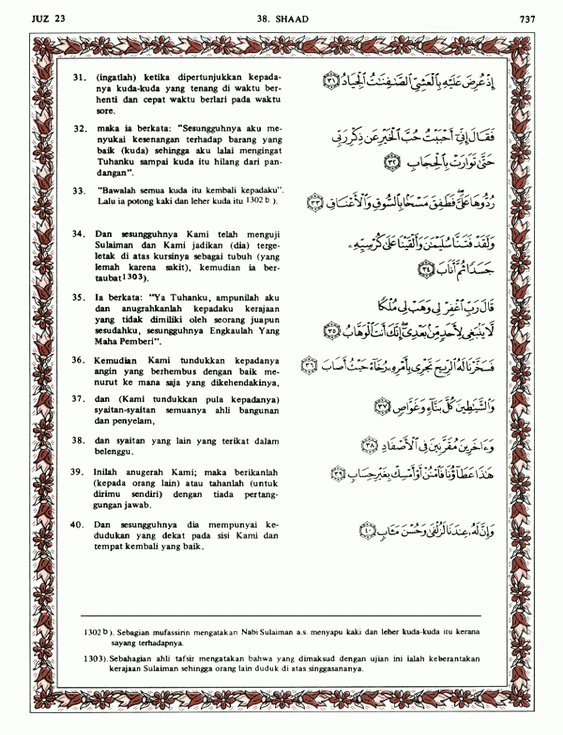 JUZ 23 38. SHAAD 737
31. (ingatlah) ketika dipertunjukkan kepada-
nya kuda-kuda yang tenang di waktu ber-
henti dan cepat waktu berlari pada waktu
sore.
إِذْ عُرِضَ عَلَيْهِ بِالْعَشِيِّ الصَّافِنَاتُ الْجِيَادُ ﴿٣١﴾
32. maka ia berkata: "Sesungguhnya aku me-
nyukai kesenangan terhadap barang yang
baik (kuda) sehingga aku lalai mengingat
Tuhanku sampai kuda itu hilang dari pan-
dangan".
فَقَالَ إِنِّي أَحْبَبْتُ حُبَّ الْخَيْرِ عَن ذِكْرِ رَبِّي
حَتَّىٰ تَوَارَتْ بِالْحِجَابِ ﴿٣٢﴾
33. "Bawalah semua kuda itu kembali kepadaku".
Lalu ia potong kaki dan leher kuda itu 1302 b ).
رُدُّوهَا عَلَيَّ ۖ فَطَفِقَ مَسْحًا بِالسُّوقِ وَالْأَعْنَاقِ ﴿٣٣﴾
34. Dan sesungguhnya Kami telah menguji
Sulaiman dan Kami jadikan (dia) terge-
letak di atas kursinya sebagai tubuh (yang
lemah karena sakit), kemudian ia ber-
taubat1303).
وَلَقَدْ فَتَنَّا سُلَيْمَانَ وَأَلْقَيْنَا عَلَىٰ كُرْسِيِّهِ
جَسَدًا ثُمَّ أَنَابَ ﴿٣٤﴾
35. Ia berkata: "Ya Tuhanku, ampunilah aku
dan anugrahkanlah kepadaku kerajaan
yang tidak dimiliki oleh seorang juapun
sesudahku, sesungguhnya Engkaulah Yang
Maha Pemberi".
قَالَ رَبِّ اغْفِرْ لِي وَهَبْ لِي مُلْكًا
لَّا يَنبَغِي لِأَحَدٍ مِّن بَعْدِي ۖ إِنَّكَ أَنتَ الْوَهَّابُ ﴿٣٥﴾
36. Kemudian Kami tundukkan kepadanya
angin yang berhembus dengan baik me-
nurut ke mana saja yang dikehendakinya,
فَسَخَّرْنَا لَهُ الرِّيحَ تَجْرِي بِأَمْرِهِ رُخَاءً حَيْثُ أَصَابَ ﴿٣٦﴾
37. dan (Kami tundukkan pula kepadanya)
syaitan-syaitan semuanya ahli bangunan
dan penyelam,
وَالشَّيَاطِينَ كُلَّ بَنَّاءٍ وَغَوَّاصٍ ﴿٣٧﴾
38. dan syaitan yang lain yang terikat dalam
belenggu.
وَآخَرِينَ مُقَرَّنِينَ فِي الْأَصْفَادِ ﴿٣٨﴾
39. Inilah anugerah Kami; maka berikanlah
(kepada orang lain) atau tahanlah (untuk
dirimu sendiri) dengan tiada pertang-
gungan jawab.
هَٰذَا عَطَاؤُنَا فَامْنُنْ أَوْ أَمْسِكْ بِغَيْرِ حِسَابٍ ﴿٣٩﴾
40. Dan sesungguhnya dia mempunyai ke-
dudukan yang dekat pada sisi Kami dan
tempat kembali yang baik.
وَإِنَّ لَهُ عِندَنَا لَزُلْفَىٰ وَحُسْنَ مَآبٍ ﴿٤٠﴾
1302 b ). Sebagian mufassirin mengatakan Nabi Sulaiman a.s. menyapu kaki dan leher kuda-kuda itu kerana
sayang terhadapnya.
1303). Sebahagian ahli tafsir mengatakan bahwa yang dimaksud dengan ujian ini ialah keberantakan
kerajaan Sulaiman sehingga orang lain duduk di atas singgasananya.